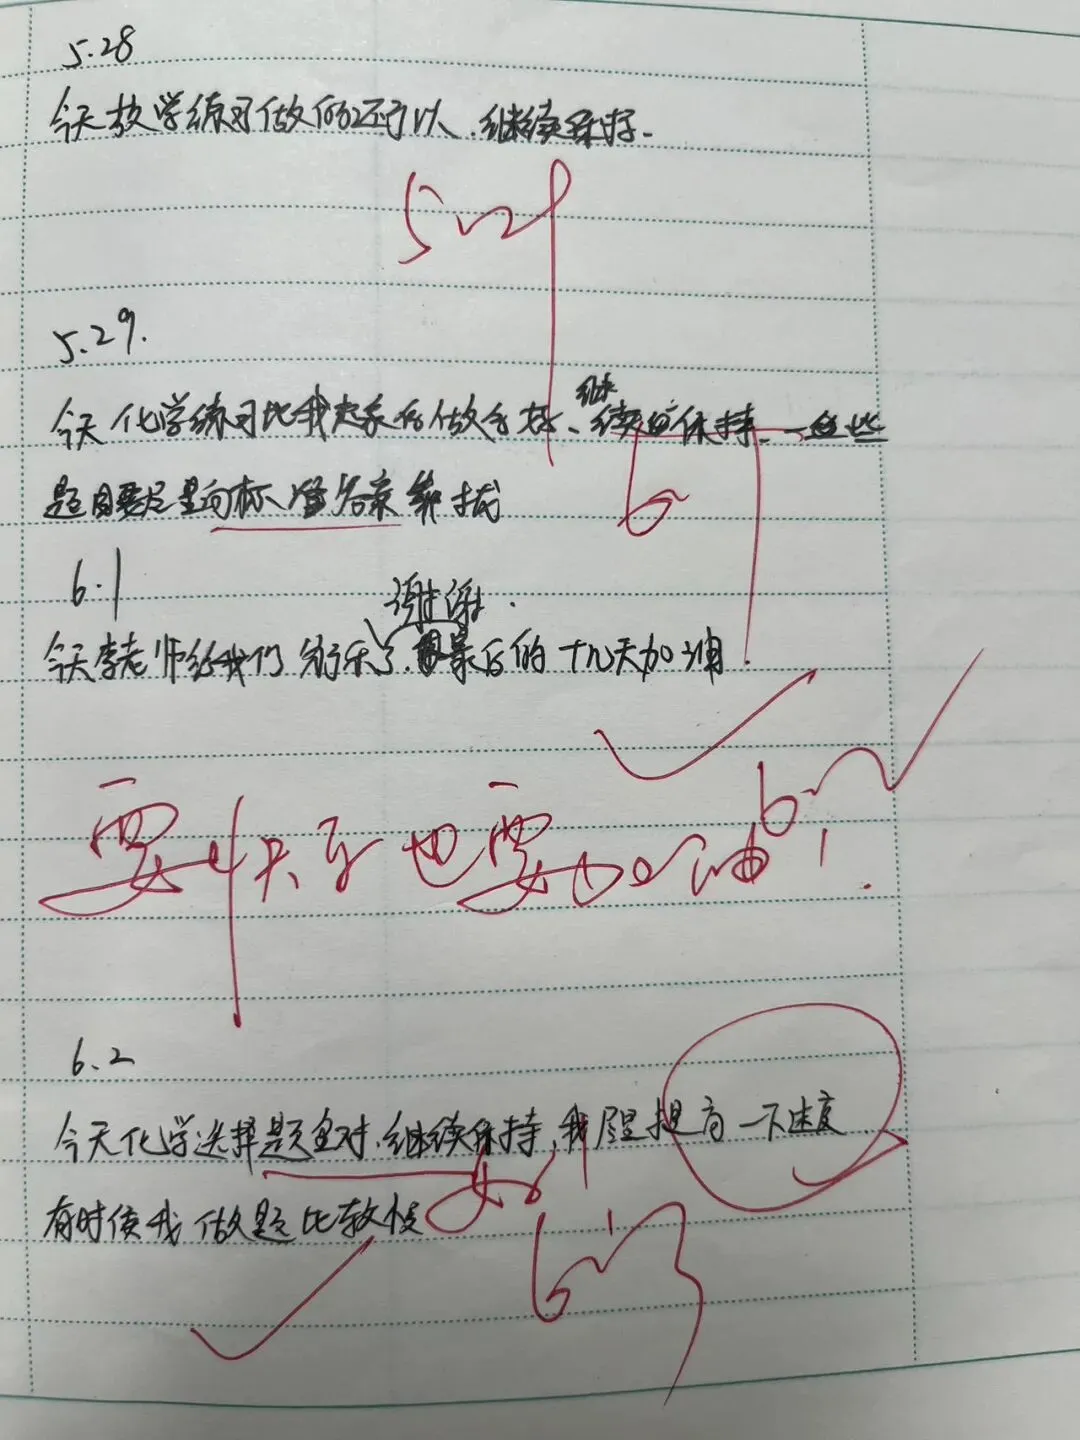 5.28
今天放学练习做的还可以,继续保持.
5.29
5.29.
继
今天化学练习比我起来后做会好、续保持、一些
题目要尽量向标准答案靠拢
6.1
6.1
谢谢.
今天李老师给我们 了.最后的十九天加油.
6.2
要快乐也要加油!
6.2
今天化学选择题全对,继续保持,我尽量提高一下速度
好
有时候我做题比较慢
6.3